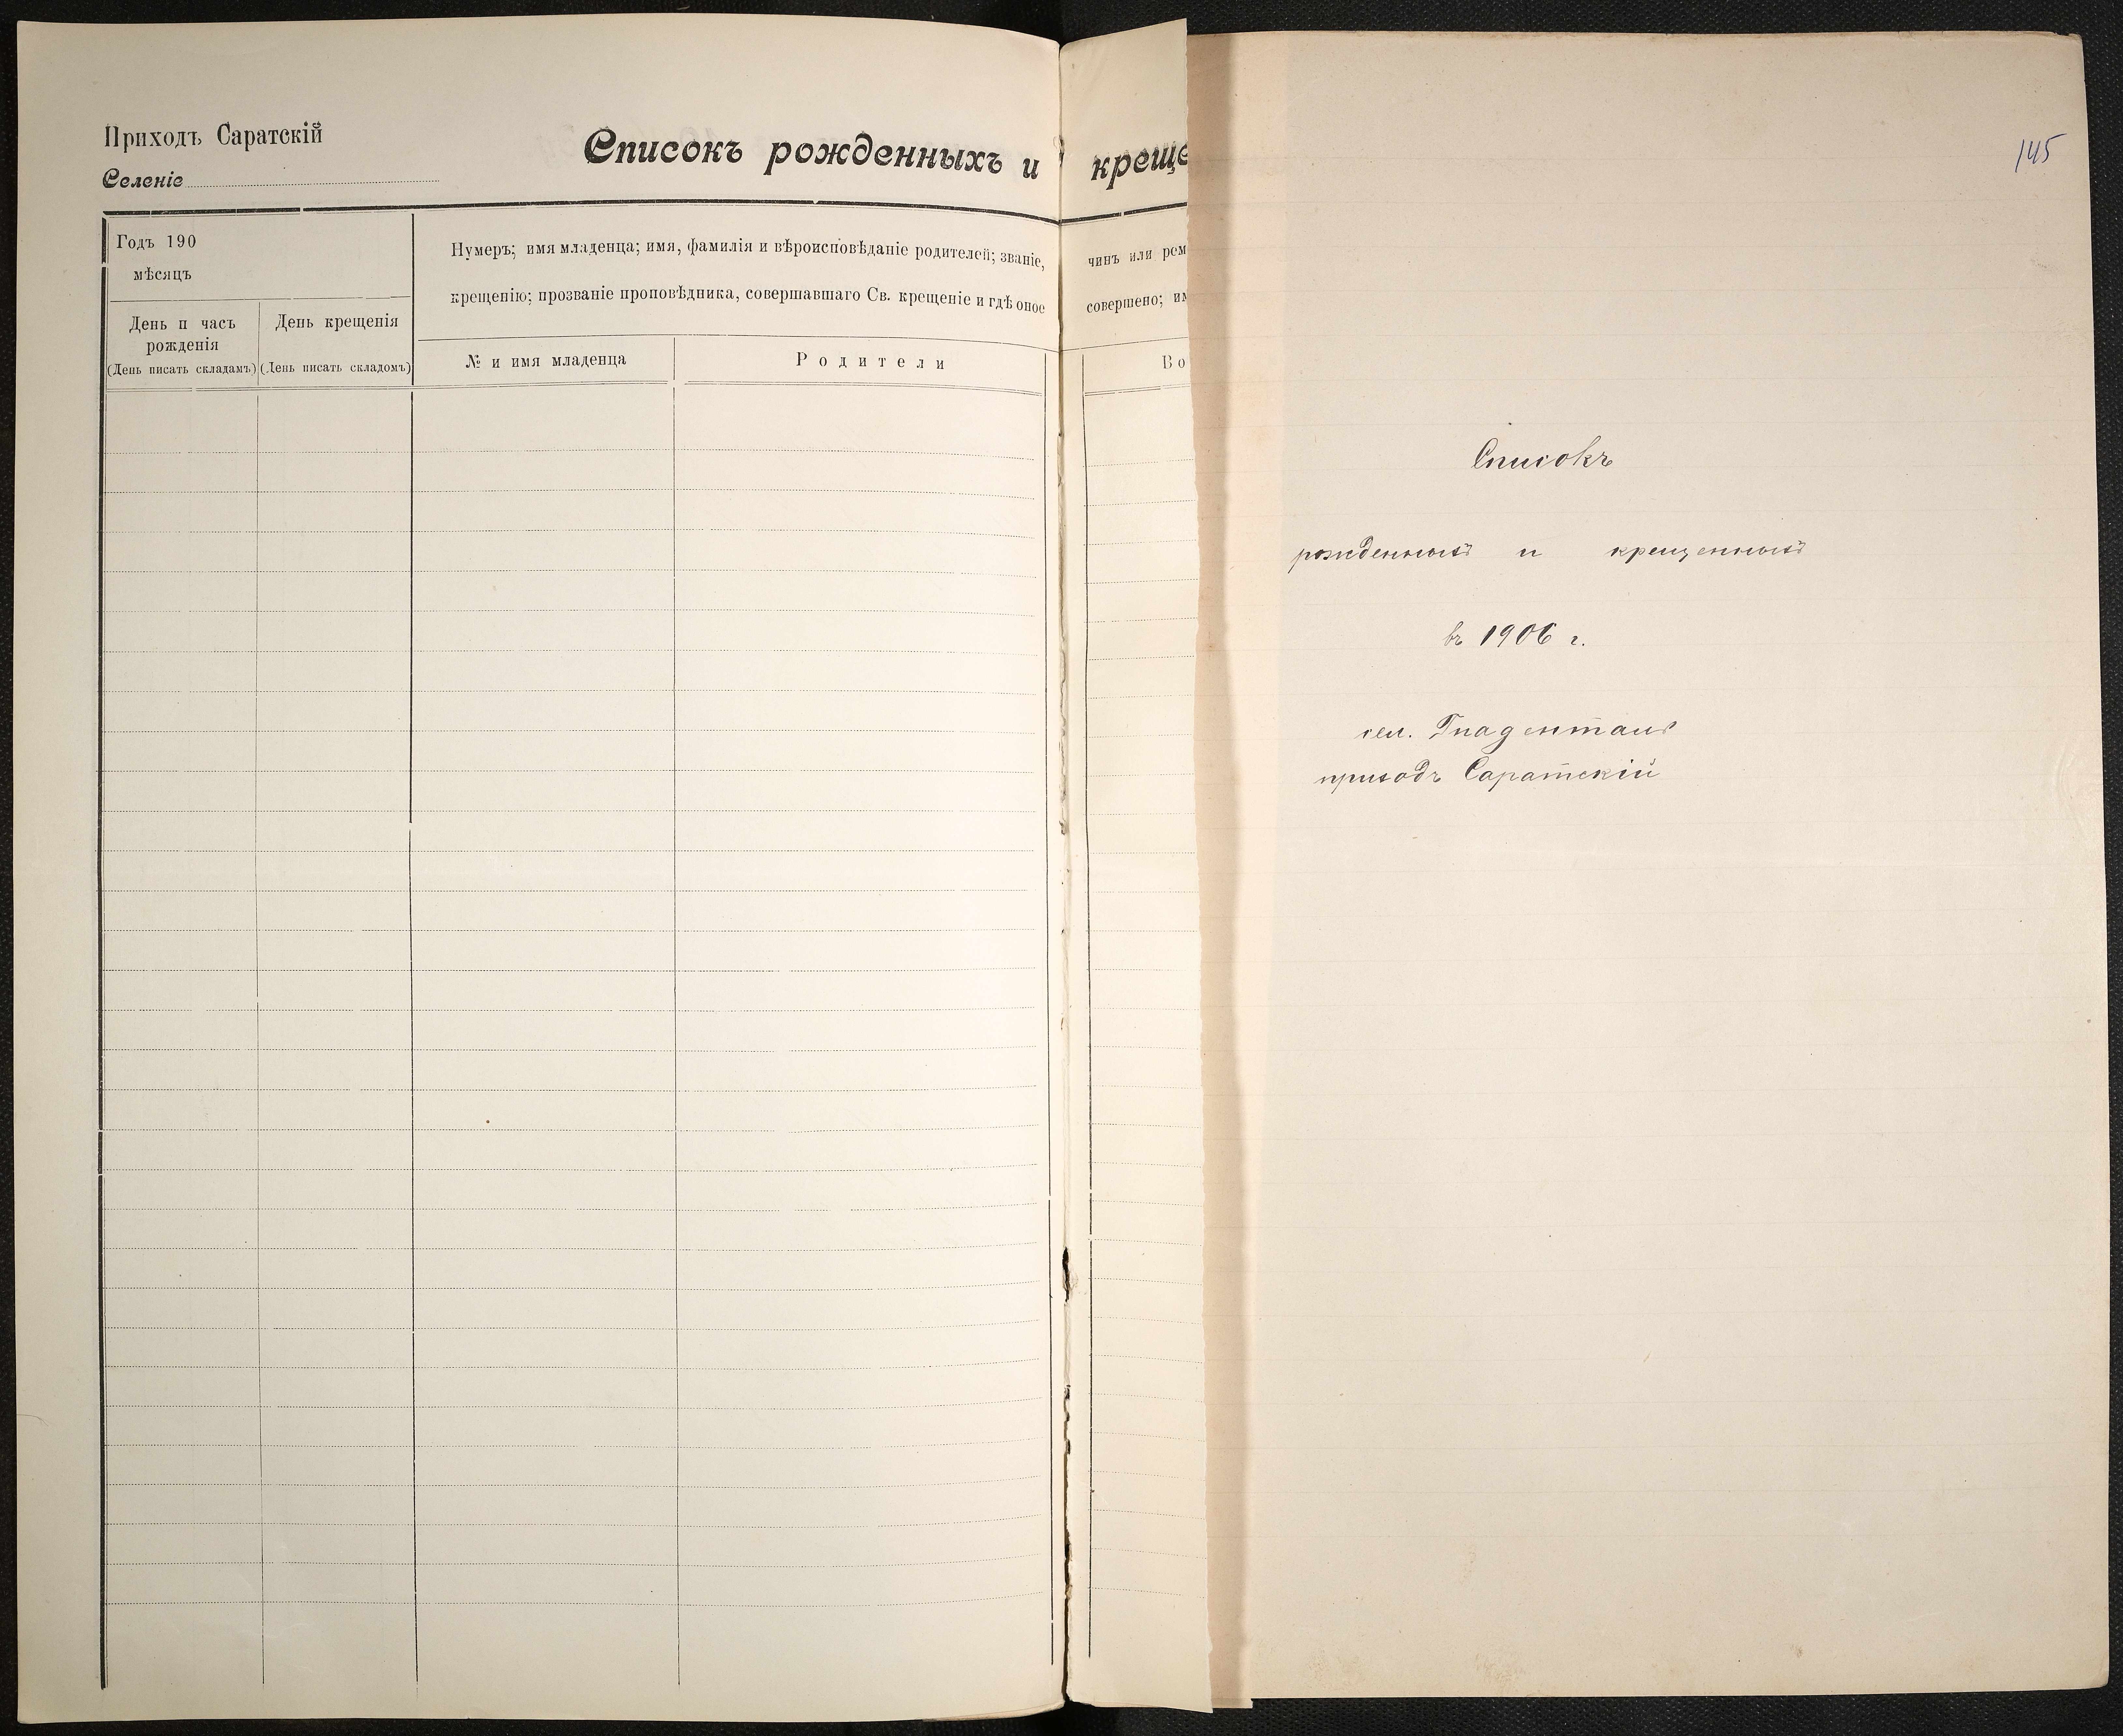 Приходъ Саратскій
Селеніе
Списокъ рожденныхъ и креще
Годъ 190
мѣсяцъ
День п часъ рожденія
(День писать складамъ)
День крещенія
(День писать складомъ)
Нумеръ; имя младенца; имя, фамилія и вѣроисповѣданіе родителей; званіе, чинъ или рем
крещенію; прозваніе проповѣдника, совершавшаго Св. крещеніе и гдѣ оное совершено; им
№ и имя младенца
Родители
Во
145
Списокъ
рожденныхъ и крещенныхъ
въ 1906 г.
сел. Гнадентальъ
приходъ Саратскій